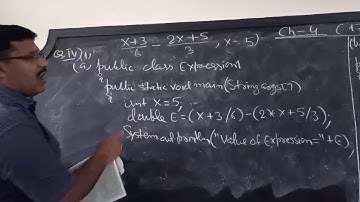 x+3/6 - 2x+5/3, x=5) Ch-4
Q.IV)(1)
(a public class Expression
{ public static void main(String args[])
{ int x=5;
double E=(x+3/6)-(2*x+5/3);
System.out.println("Value of Expression="+E);